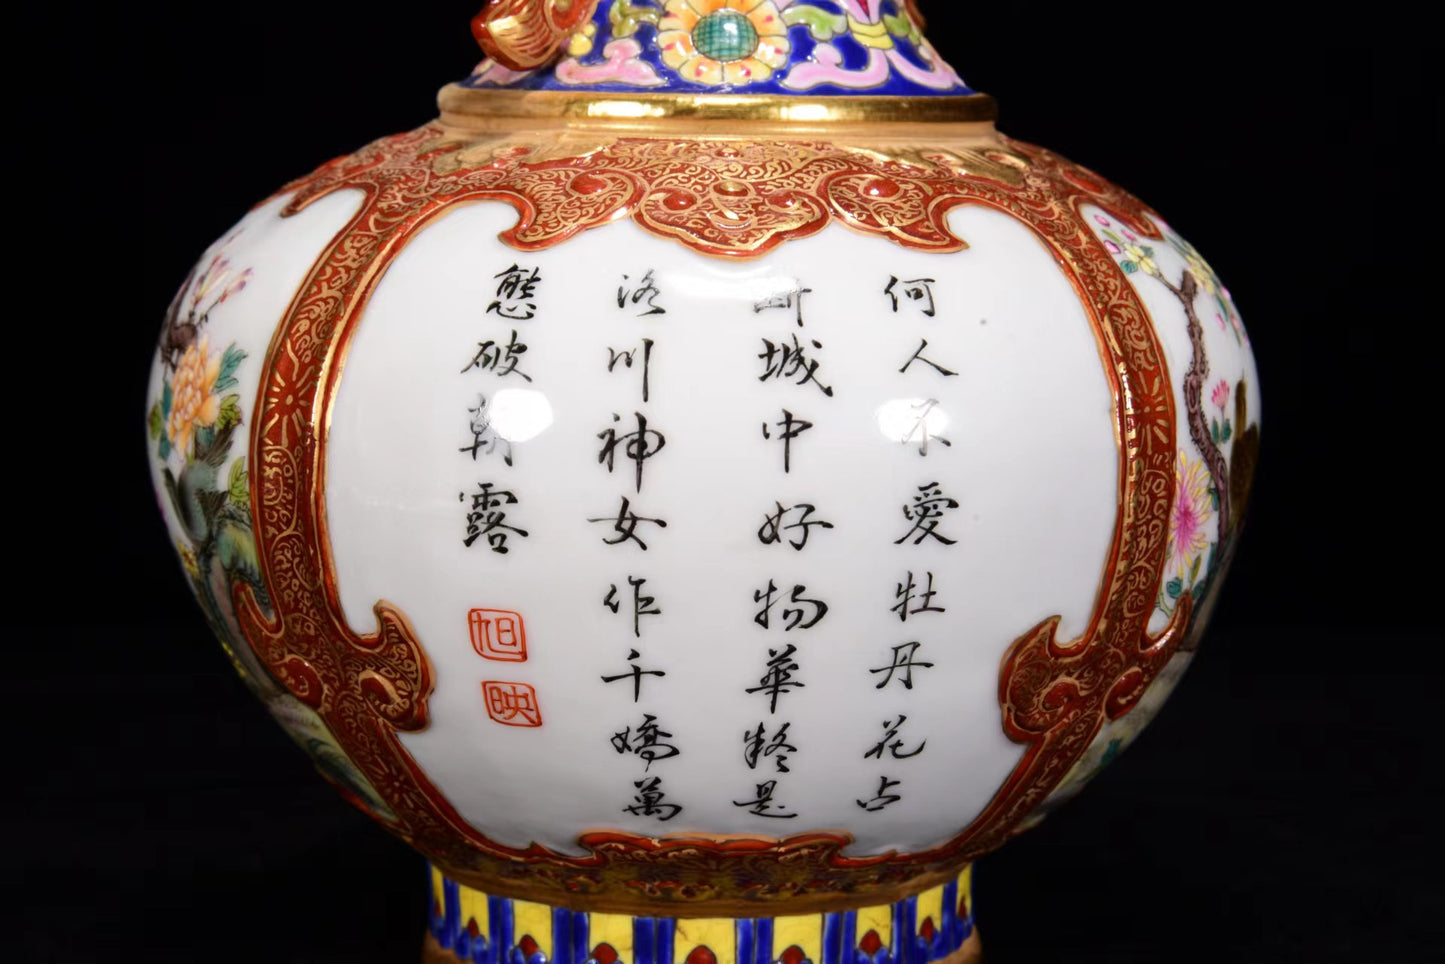 何人不愛牡丹花占
断城中好物華疑是
洛川神女作千嬌萬
態破朝露
旭
映